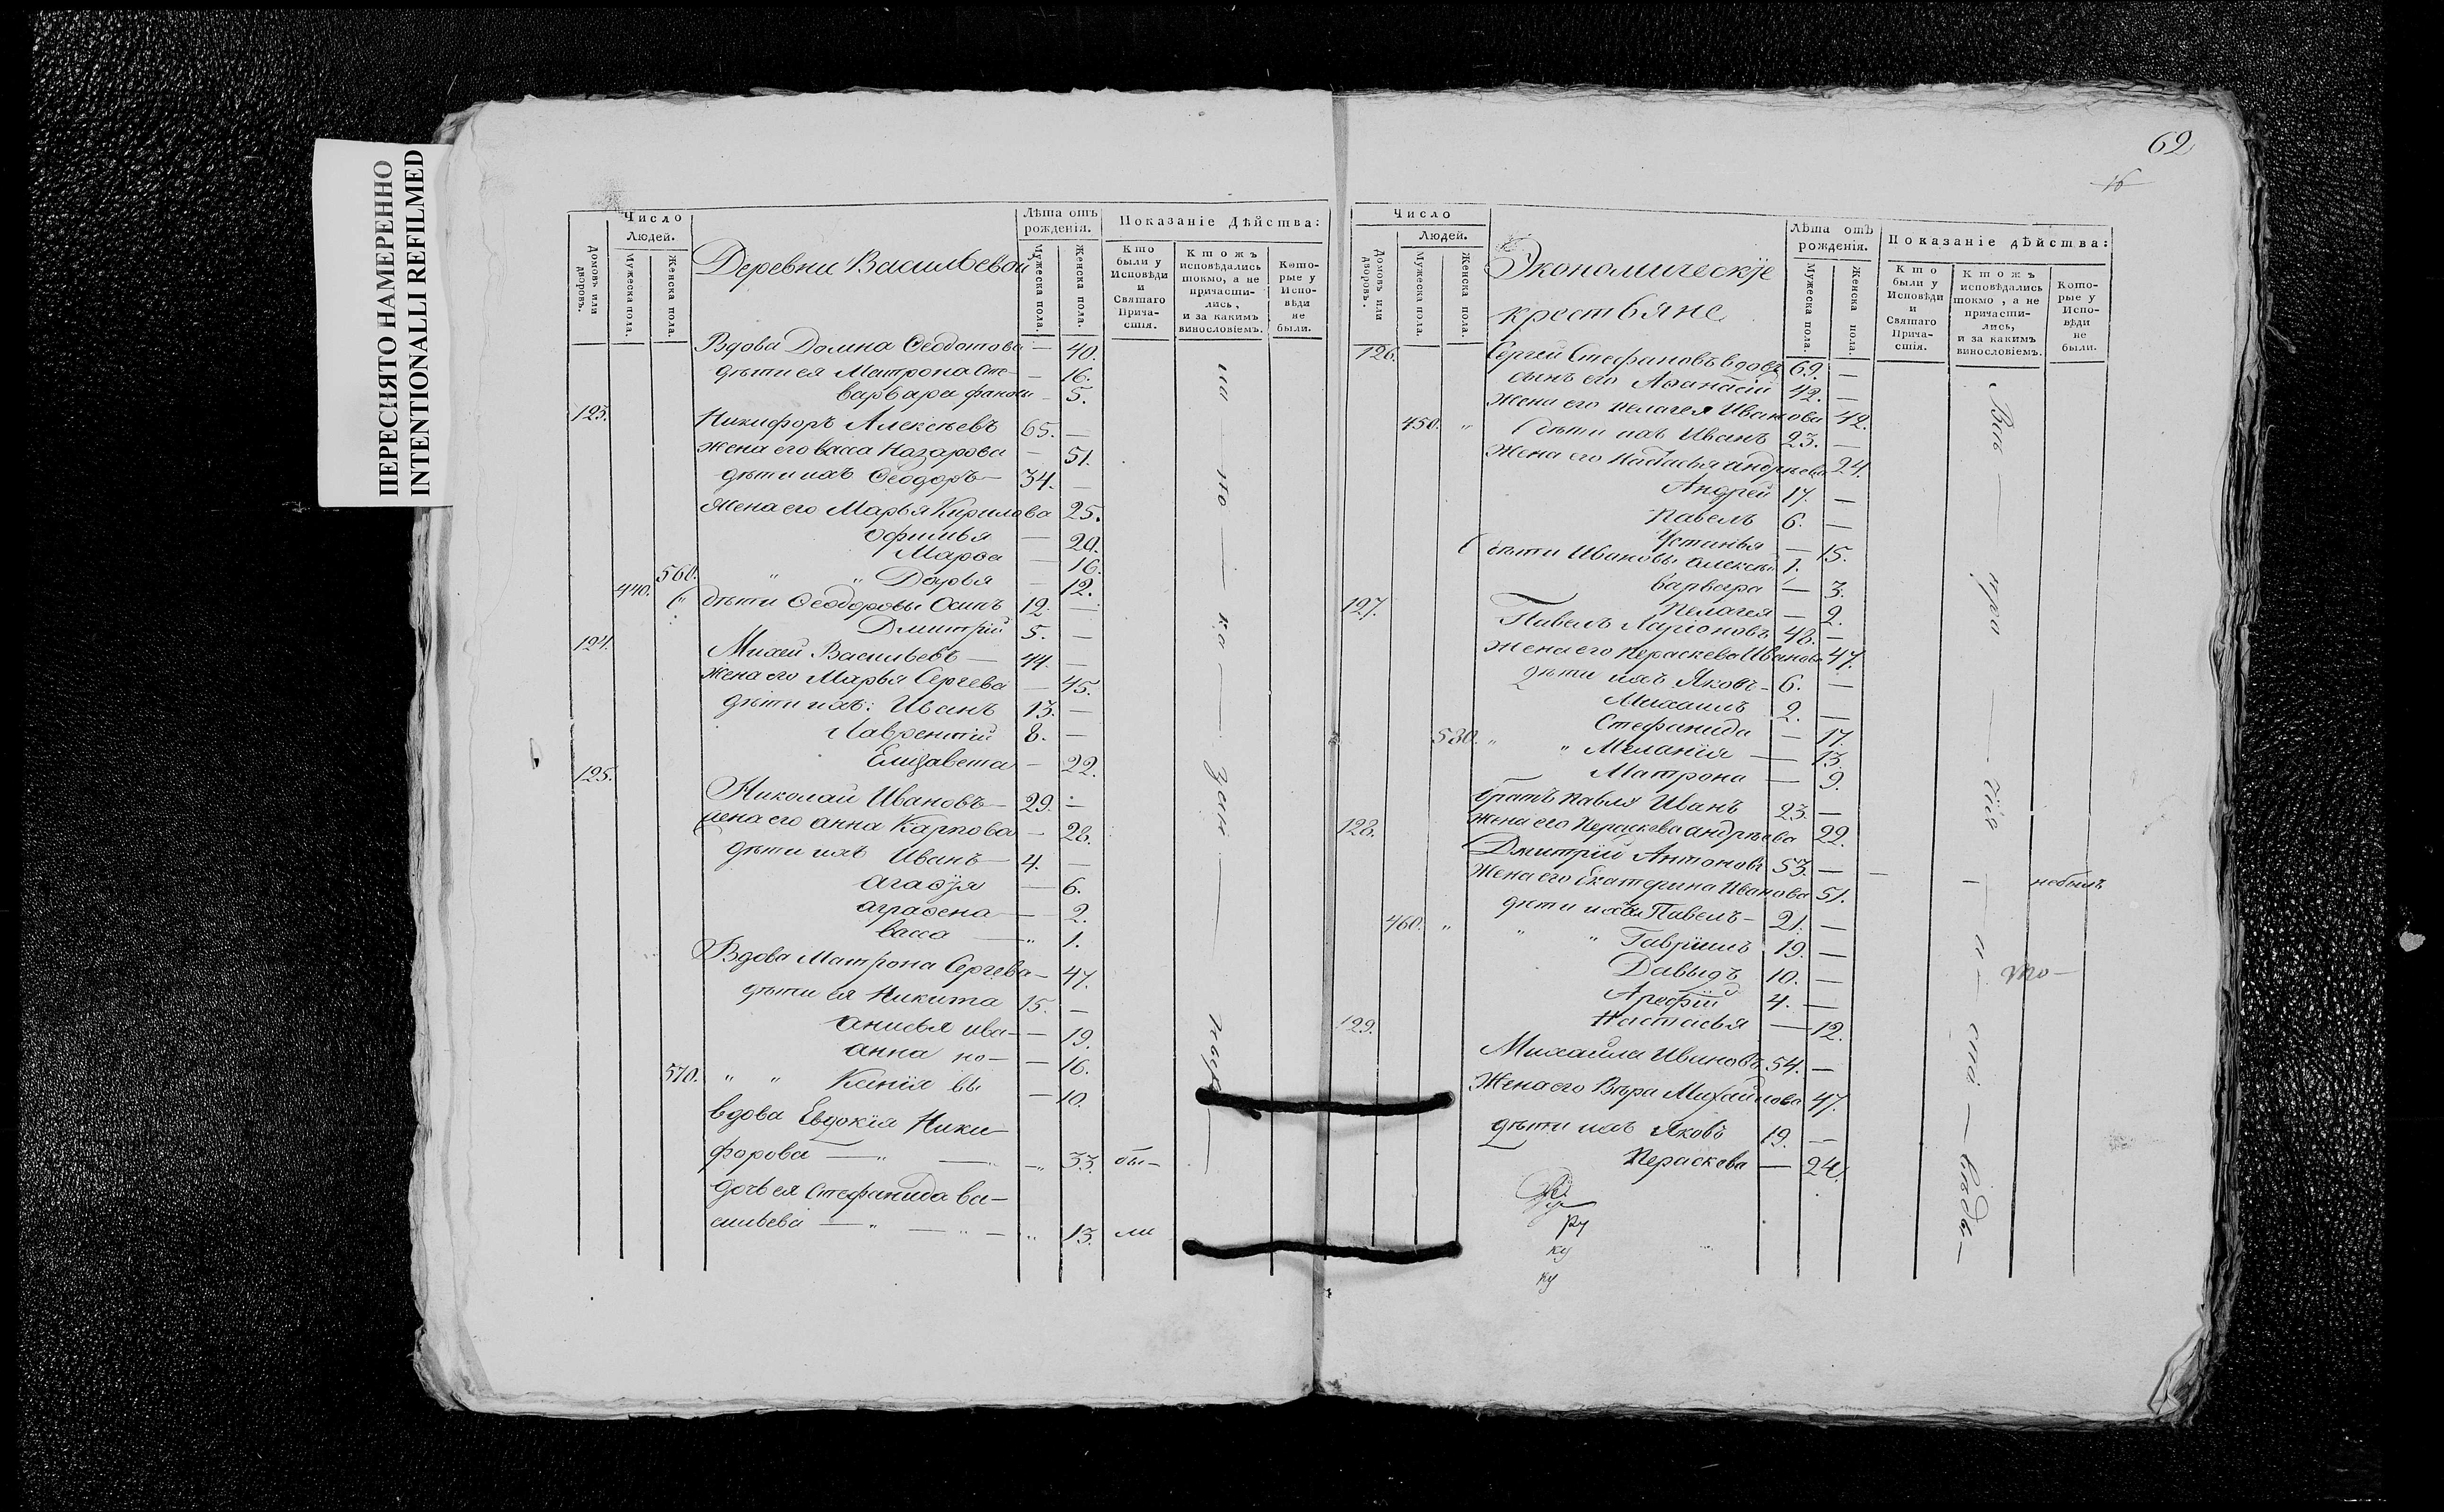 ПЕРЕСНЯТО НАМЕРЕННО
INTENTIONALLI REFILMED
62
16
Число
Людей.
Домовъ или дворовъ.
Мужеска пола.
Женска пола.
Деревни Васильевой
Лѣта отъ рожденія.
Мужеска пола.
Женска пола.
Показаніе Дѣйства:
Кто были у Исповѣди и Святаго Прича-стія.
Ктожъ исповѣдались токмо, а не причасти-лись, и за какимъ винословіемъ.
Кото-рые у Испо-вѣди не были.
Вдова Домна Ѳеодотова — 40.
дѣти ея Матрона Сте- — 16.
варвара фановы — 5.
123. Никифоръ Алексѣевъ 65. —
жена его васса Назарова — 51.
дѣти ихъ Ѳеодоръ — 34. —
Жена его Марья Кирилова 25.
Офимья — 20.
Марѳа — 16.
560. " " Дарья — 12.
440. " дѣти Ѳеодоровы Осипъ 12. —
Дмитрій 5. —
124. Михей Васильевъ — 44. —
жена его Марья Сергева — 45.
дѣти ихъ: Иванъ 13. —
Лаврентій 8. —
Елизавета — 22.
125. Николай Ивановъ — 29. —
жена его анна Карпова — 28.
дѣти ихъ Иванъ — 4. —
агаѳія — 6.
аграѳена — 2.
васса — " 1.
Вдова Матрона Сергева — 47.
дѣти ея Никита 15. —
анисья ива- — 19.
анна но- — 16.
570. " " Ксенія вы — 10.
вдова Евдокія Ники-
форова — " — " — " 33. бы-
дочь ея Стефанида ва-
сильева — " — " — " 13. ли
Число
Людей.
Домовъ или дворовъ.
Мужеска пола.
Женска пола.
Экономическіе
крестьяне
Лѣта отъ рожденія.
Мужеска пола.
Женска пола.
Показаніе дѣйства:
Кто были у Исповѣди и Святаго Прича-стія.
Ктожъ исповѣдались токмо, а не причасти-лись, и за какимъ винословіемъ.
Кото-рые у Испо-вѣди не были.
126. Сергей Стефановъ вдовъ 69. —
сынъ его Аѳанасій 42. —
жена его пелагея Иванова 42.
450. " дѣти ихъ Иванъ 23. —
Жена его настасья андрѣева 24.
Андрей 17. —
Павелъ 6. —
Устинья — 15.
дѣти Ивановы алексѣй 1.
варвара — 3.
Пелагея — 2.
127. Павелъ Ларіоновъ 48. —
жена его Пераскева Иванова 47.
дѣти ихъ Яковъ — 6. —
Михаилъ 2. —
Стефанида — 17.
580. " " Меланія — 13.
Матрона — 9.
братъ павла Иванъ 23. —
жена его Пераскева андрѣева 22.
128. Дмитрій Антоновъ 53. — небылъ
Жена его Екатерина Иванова 51.
дѣти ихъ Павелъ — 21. —
460. " " " Гавріилъ 19. —
Давыдъ 10. —
Арефій 4. —
Настасья — 12.
129. Михайла Ивановъ 54. —
Жена его Вѣра Михайлова 47.
дѣти ихъ Яковъ 19. —
Пераскева — 24.
ру
ку
ку